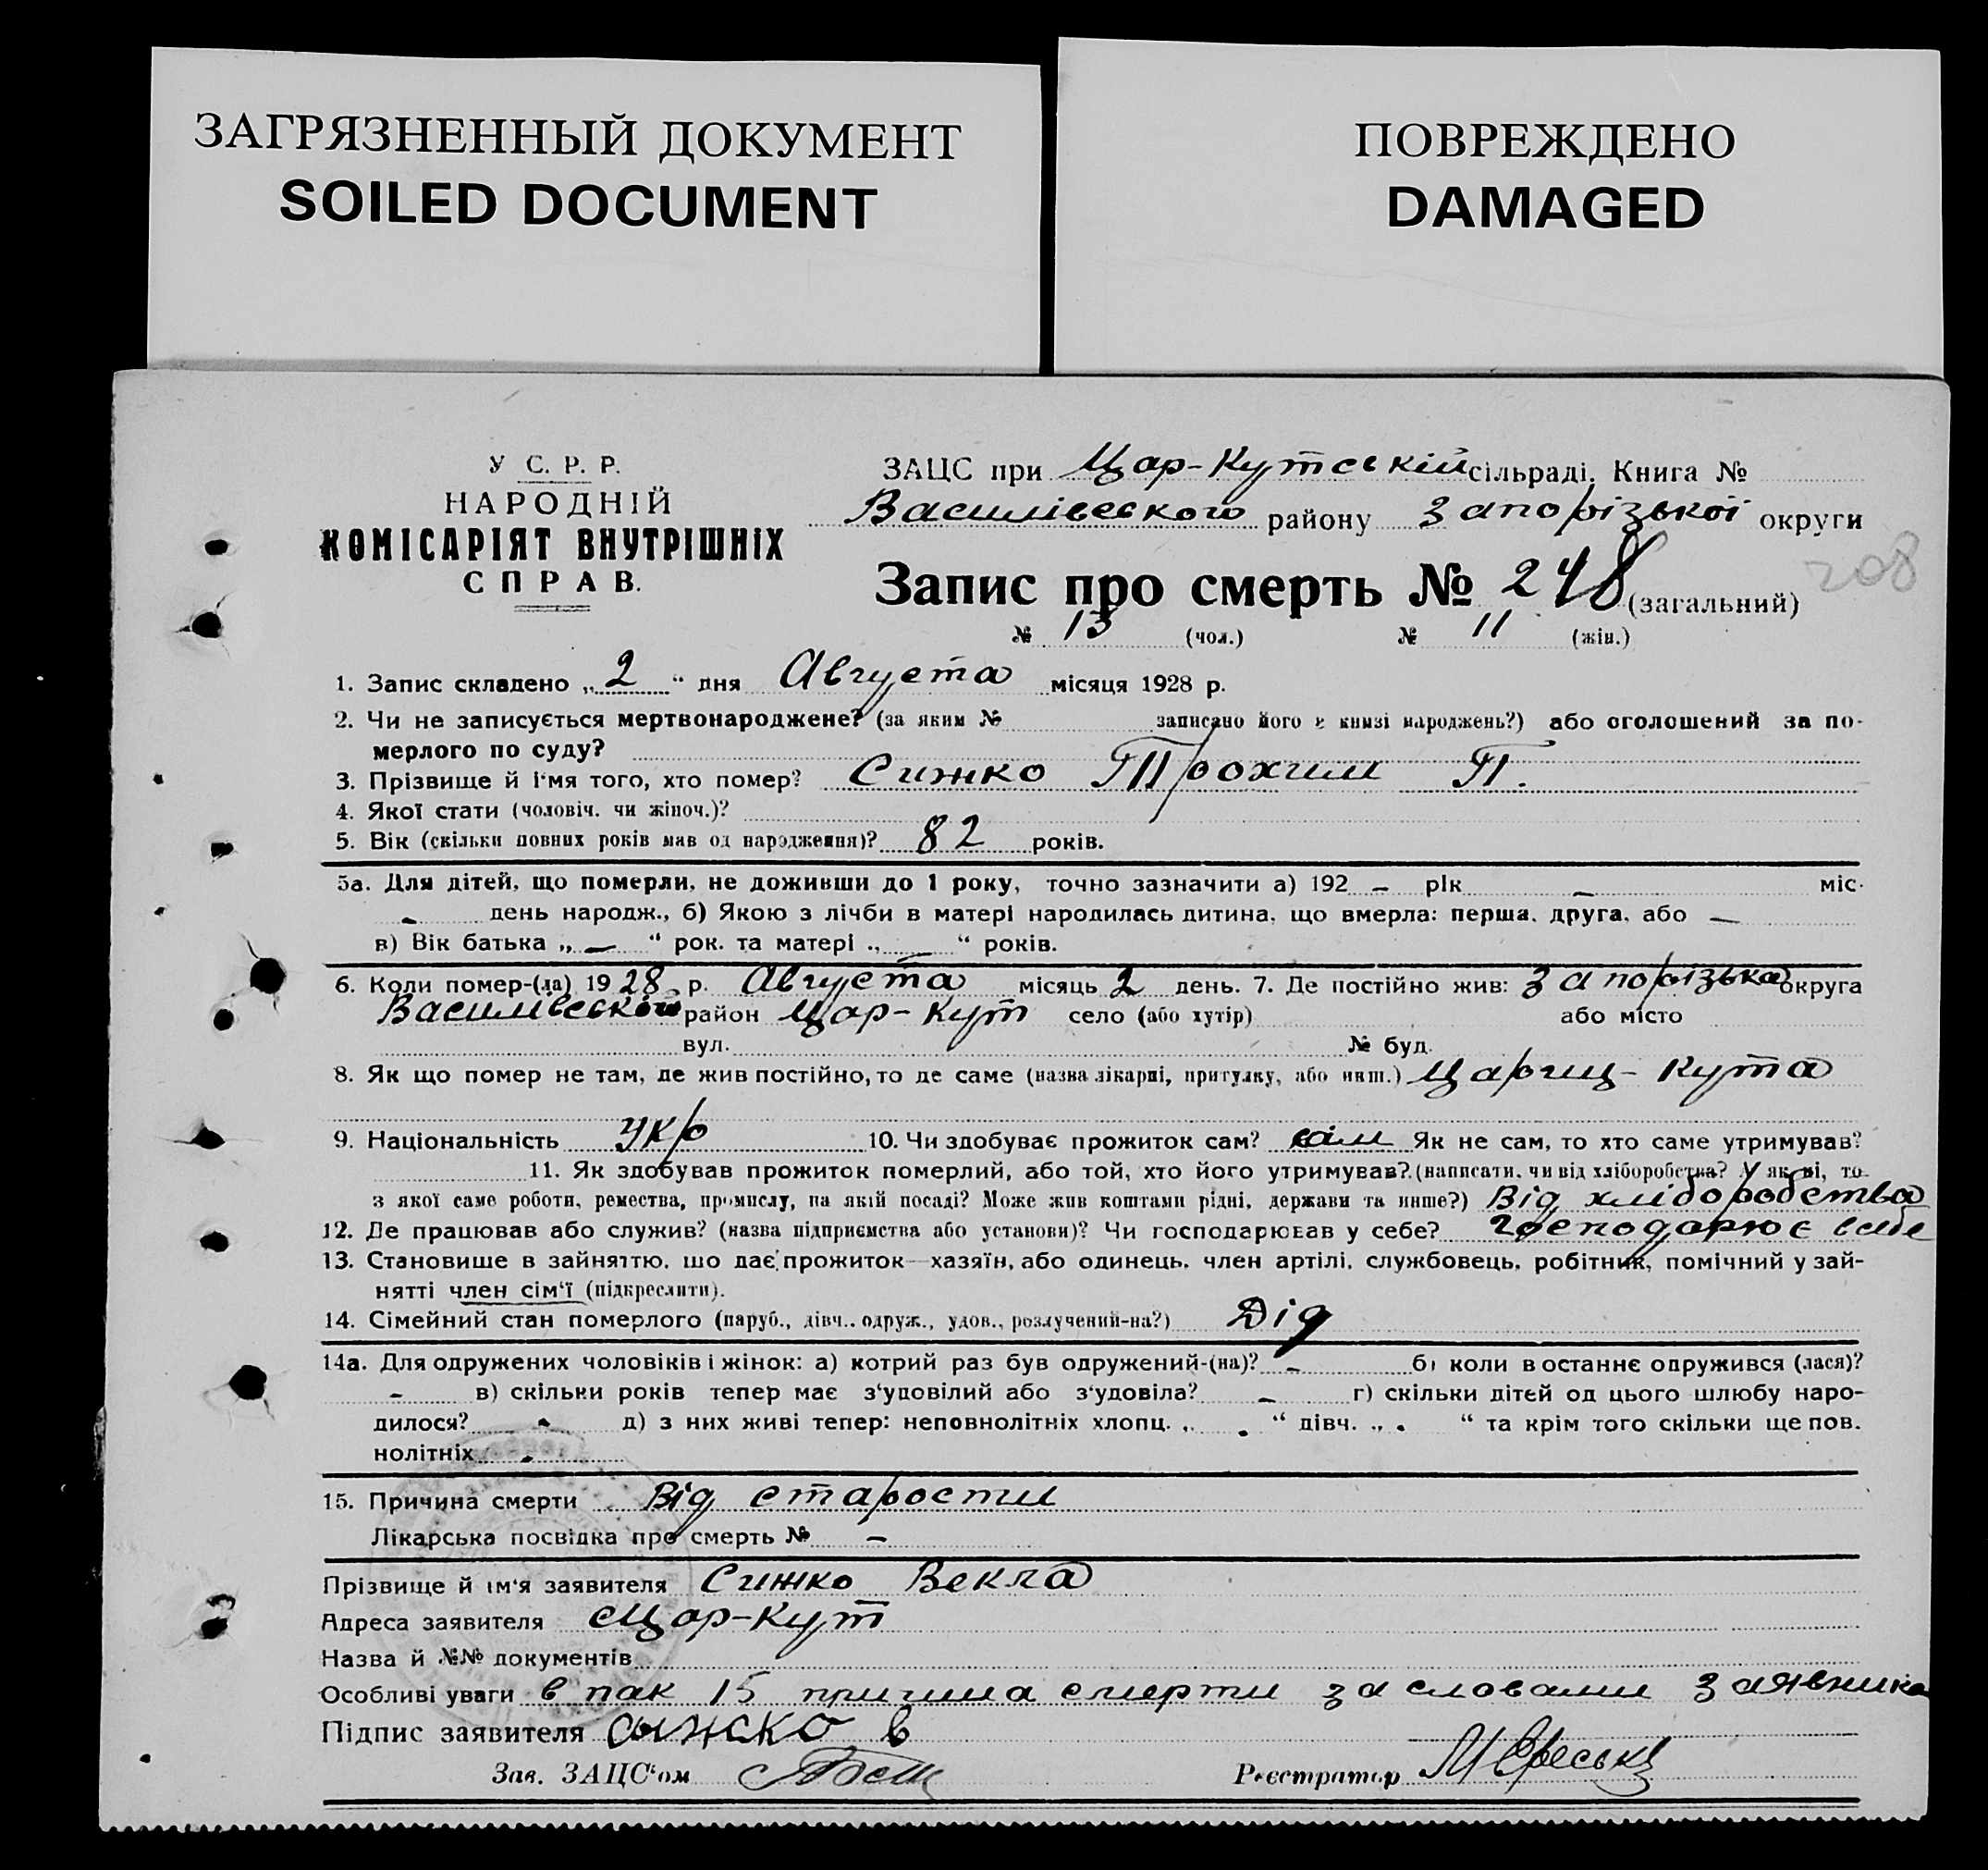 ЗАГРЯЗНЕННЫЙ ДОКУМЕНТ
SOILED DOCUMENT
ПОВРЕЖДЕНО
DAMAGED
У С. Р. Р.
НАРОДНІЙ
КОМІСАРІЯТ ВНУТРІШНІХ
СПРАВ.
ЗАЦС при Цар-Кутській сільраді. Книга №
Василівського району Запорізької округи
Запис про смерть № 248 (загальний)
208
№ 13 (чол.) № 11 (жін.)
1. Запис складено „2“ дня Августа місяця 1928 р.
2. Чи не записується мертвонароджене? (за яким № записано його в книзі народжень?) або оголошений за по-
мерлого по суду?
3. Прізвище й ім'я того, хто помер? Сижко Прохим П.
4. Якої стати (чоловіч. чи жіноч.)?
5. Вік (скільки повних років мав од народження)? 82 років.
5а. Для дітей, що померли, не доживши до 1 року, точно зазначити а) 192 – рік – міс.
– день народж., б) Якою з лічби в матері народилась дитина, що вмерла: перша, друга, або –
в) Вік батька „–“ рок. та матері „–“ років.
6. Коли помер-(ла) 1928 р. Августа місяць 2 день. 7. Де постійно жив: Запорізька округа
Василівського район Цар-Кут село (або хутір) або місто
вул. № буд.
8. Як що помер не там, де жив постійно, то де саме (назва лікарні, притулку, або инш.) Цариц-Кута
9. Національність Укр 10. Чи здобуває прожиток сам? сам Як не сам, то хто саме утримував?
11. Як здобував прожиток померлий, або той, хто його утримував? (написати, чи від хліборобства? У як ні, то
з якої саме роботи, ремества, промислу, на якій посаді? Може жив коштами рідні, держави та инше?) Від хліборобства
12. Де працював або служив? (назва підприємства або установи)? Чи господарював у себе? господарює в себе
13. Становище в зайняттю, що дає прожиток—хазяїн, або одинець, член артілі, службовець, робітник, помічний у зай-
нятті член сім'ї (підкреслити).
14. Сімейний стан померлого (паруб., дівч., одруж., удов., розлучений-на?) Дід
14а. Для одружених чоловіків і жінок: а) котрий раз був одружений-(на)? – б) коли в останнє одружився (лася)?
– в) скільки років тепер має з'удовілий або з'удовіла? – г) скільки дітей од цього шлюбу наро-
дилося? д) з них живі тепер: неповнолітніх хлопц. „ “ дівч. „ “ та крім того скільки ще пов.
нолітніх
15. Причина смерти Від старости
Лікарська посвідка про смерть № –
Прізвище й ім'я заявителя Сижко Векла
Адреса заявителя с Цар-Кут
Назва й №№ документів
Особливі уваги в пак 15 причина смерти за словами заявника
Підпис заявителя Сыжско в
Зав. ЗАЦС'ом
Реєстратор